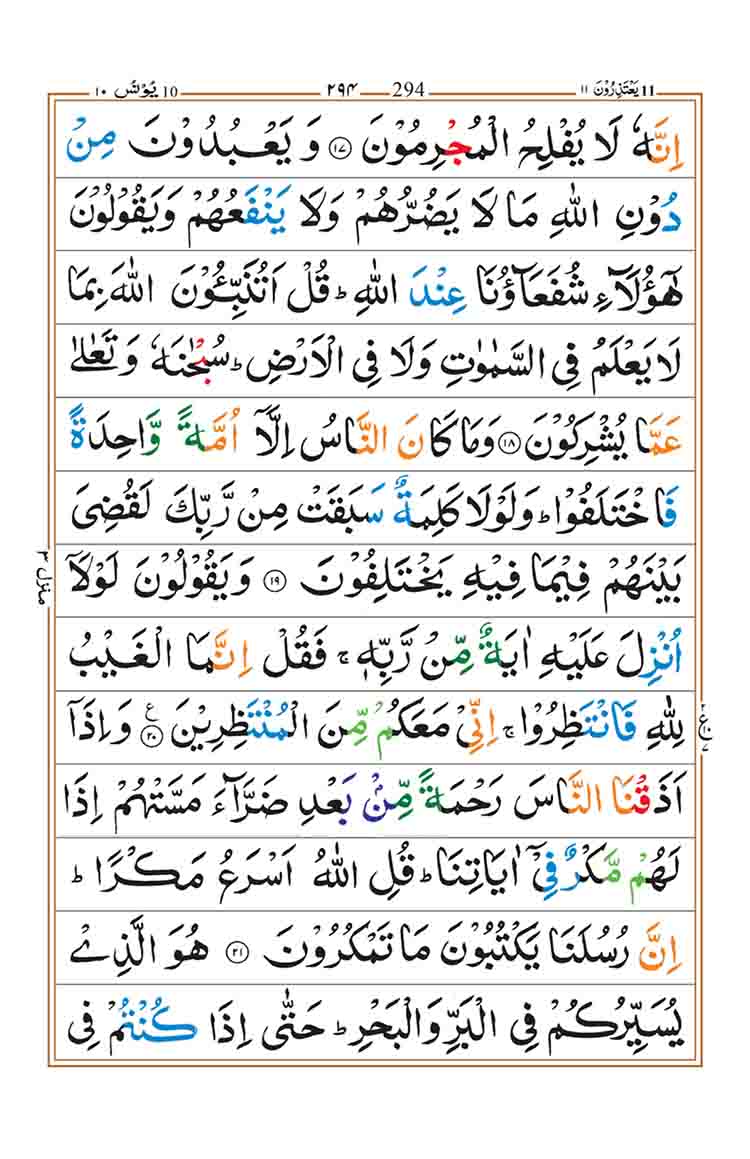 ١٠ يُوْنُسَ 10 ٢٩٤ 294 ١١ يَعْتَذِرُوْنَ 11
اِنَّهٗ لَا يُفْلِحُ الْمُجْرِمُوْنَ ۝١٧ وَ يَعْبُدُوْنَ مِنْ
دُوْنِ اللّٰهِ مَا لَا يَضُرُّهُمْ وَلَا يَنْفَعُهُمْ وَيَقُوْلُوْنَ
هٰٓؤُلَآءِ شُفَعَآؤُنَا عِنْدَ اللّٰهِ ؕ قُلْ اَتُنَبِّـُٔوْنَ اللّٰهَ بِمَا
لَا يَعْلَمُ فِي السَّمٰوٰتِ وَلَا فِي الْاَرْضِ ؕ سُبْحٰنَهٗ وَ تَعٰلٰى
عَمَّا يُشْرِكُوْنَ ۝١٨ وَمَا كَانَ النَّاسُ اِلَّآ اُمَّةً وَّاحِدَةً
فَاخْتَلَفُوْا ؕ وَلَوْلَا كَلِمَةٌ سَبَقَتْ مِنْ رَّبِّكَ لَقُضِيَ
بَيْنَهُمْ فِيْمَا فِيْهِ يَخْتَلِفُوْنَ ۝١٩ وَيَقُوْلُوْنَ لَوْلَآ
منزل ٣
اُنْزِلَ عَلَيْهِ اٰيَةٌ مِّنْ رَّبِّهٖ ۚ فَقُلْ اِنَّمَا الْغَيْبُ
لِلّٰهِ فَانْتَظِرُوْا ۚ اِنِّيْ مَعَكُمْ مِّنَ الْمُنْتَظِرِيْنَ ۝٢٠ ع وَاِذَآ
اَذَقْنَا النَّاسَ رَحْمَةً مِّنْ بَعْدِ ضَرَّآءَ مَسَّتْهُمْ اِذَا
لَهُمْ مَّكْرٌ فِيْٓ اٰيَاتِنَا ؕ قُلِ اللّٰهُ اَسْرَعُ مَكْرًا ؕ
اِنَّ رُسُلَنَا يَكْتُبُوْنَ مَا تَمْكُرُوْنَ ۝٢١ هُوَ الَّذِيْ
يُسَيِّرُكُمْ فِي الْبَرِّ وَالْبَحْرِ ؕ حَتّٰٓى اِذَا كُنْتُمْ فِي